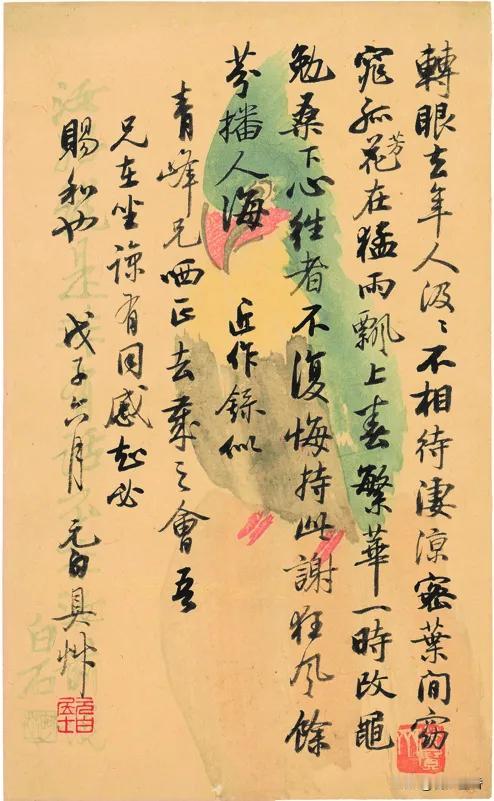 轉眼去年人汲〻不相待淒涼密葉間窈
窕孤花在猛雨飄上春繁華一時改黽
芳
勉桑下心往者不復悔持此謝狂風餘
芬播人海 近作錄似
青峰兄哂正去歲之會吾
兄在坐諒有同感必
賜和也 戊子六月 元白具艸
白石